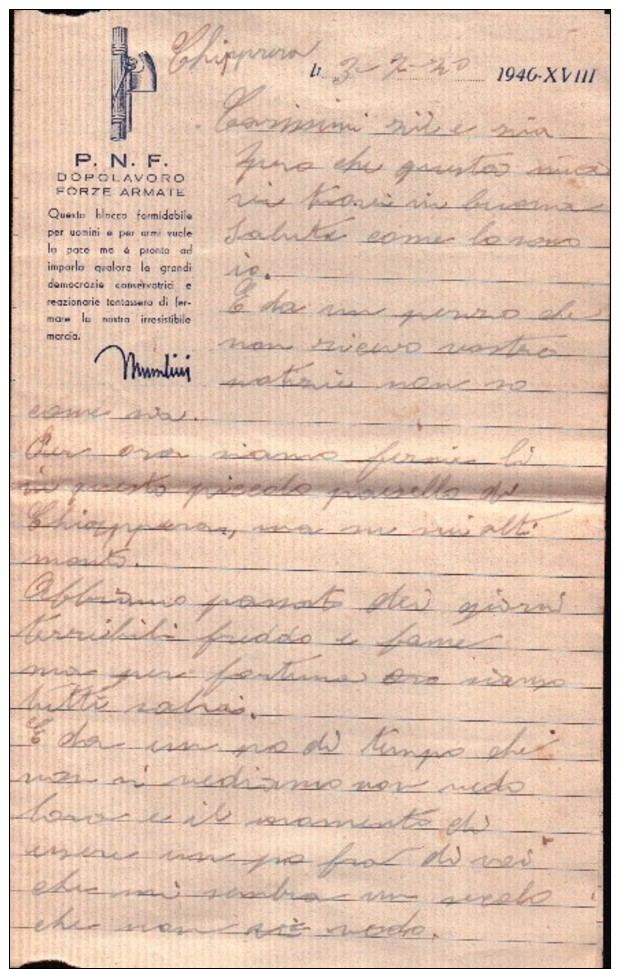 Chippera
li 3-7-40 1940-XVIII
P. N. F.
DOPOLAVORO
FORZE ARMATE
Questo blocco formidabile
per uomini e per armi vuole
la pace ma è pronto ad
imporla qualora le grandi
democrazie conservatrici e
reazionarie tentassero di fer-
mare la nostra irresistibile
marcia.
Mussolini
Carissimi zii e zia
spero che questa mia
vi trovi in buona
salute come lo sono
io.
E da un pezzo che
non ricevo vostre
notizie non so
come sia.
Per ora siamo fermi li
in questo piccolo paesello di
Chiappera, ma su sui alti
monti.
Abbiamo passato dei giorni
terribili freddo e fame
ma per fortuna ora siamo
tutti salvi.
E da un po di tempo che
non ci vediamo non vedo
l'ora e il momento di
essere un po fra di voi
che mi sembra un secolo
che non vi vedo.